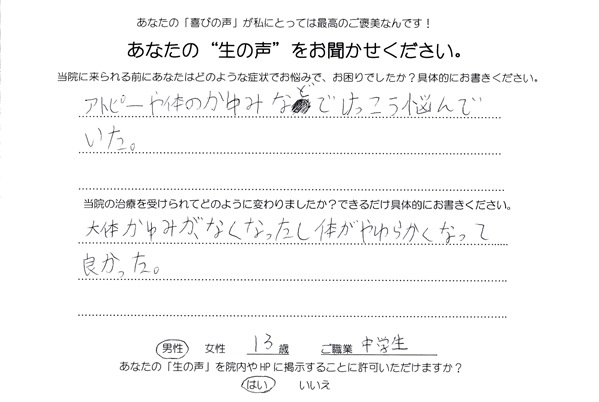 あなたの「喜びの声」が私にとっては最高のご褒美なんです！
あなたの“生の声”をお聞かせください。
当院に来られる前にあなたはどのような症状でお悩みで、お困りでしたか？具体的にお書きください。
アトピーや体のかゆみなどでけっこう悩んで
いた。
当院の治療を受けられてどのように変わりましたか？できるだけ具体的にお書きください。
大体かゆみが、なくなったし体がやわらかくなって
良かった。
男性 女性 13歳 ご職業 中学生
あなたの「生の声」を院内やHPに掲示することに許可いただけますか？
はい いいえ